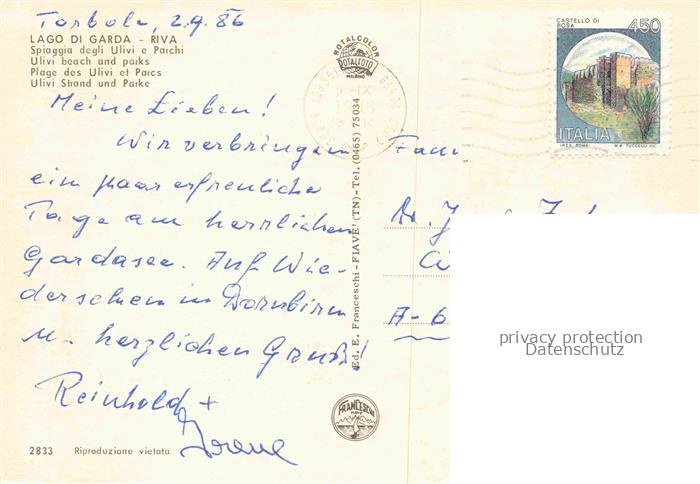 Torbole, 2.9.86
LAGO DI GARDA - RIVA
Spiaggia degli Ulivi e Parchi
Ulivi beach and parks
Plage des Ulivi et Parcs
Ulivi Strand und Parke
Meine Lieben!
Wir verbringen
ein paar erfreuliche
Tage am herrlichen
Gardasee. Auf Wie-
dersehen in Dornbirn
u. herzlichen Gruß!
Reinhold +
Irene
2833 Riproduzione vietata
ROTALCOLOR
ROTALFOTO
MILANO
Ed. E. Franceschi - FIAVE' (TN) - Tel. (0465) 75034
FRANCESCHI
CASTELLO DI
ROSA
450
ITALIA
I.P.Z.S. ROMA
Fam
Dr.
A-6
privacy protection
Datenschutz